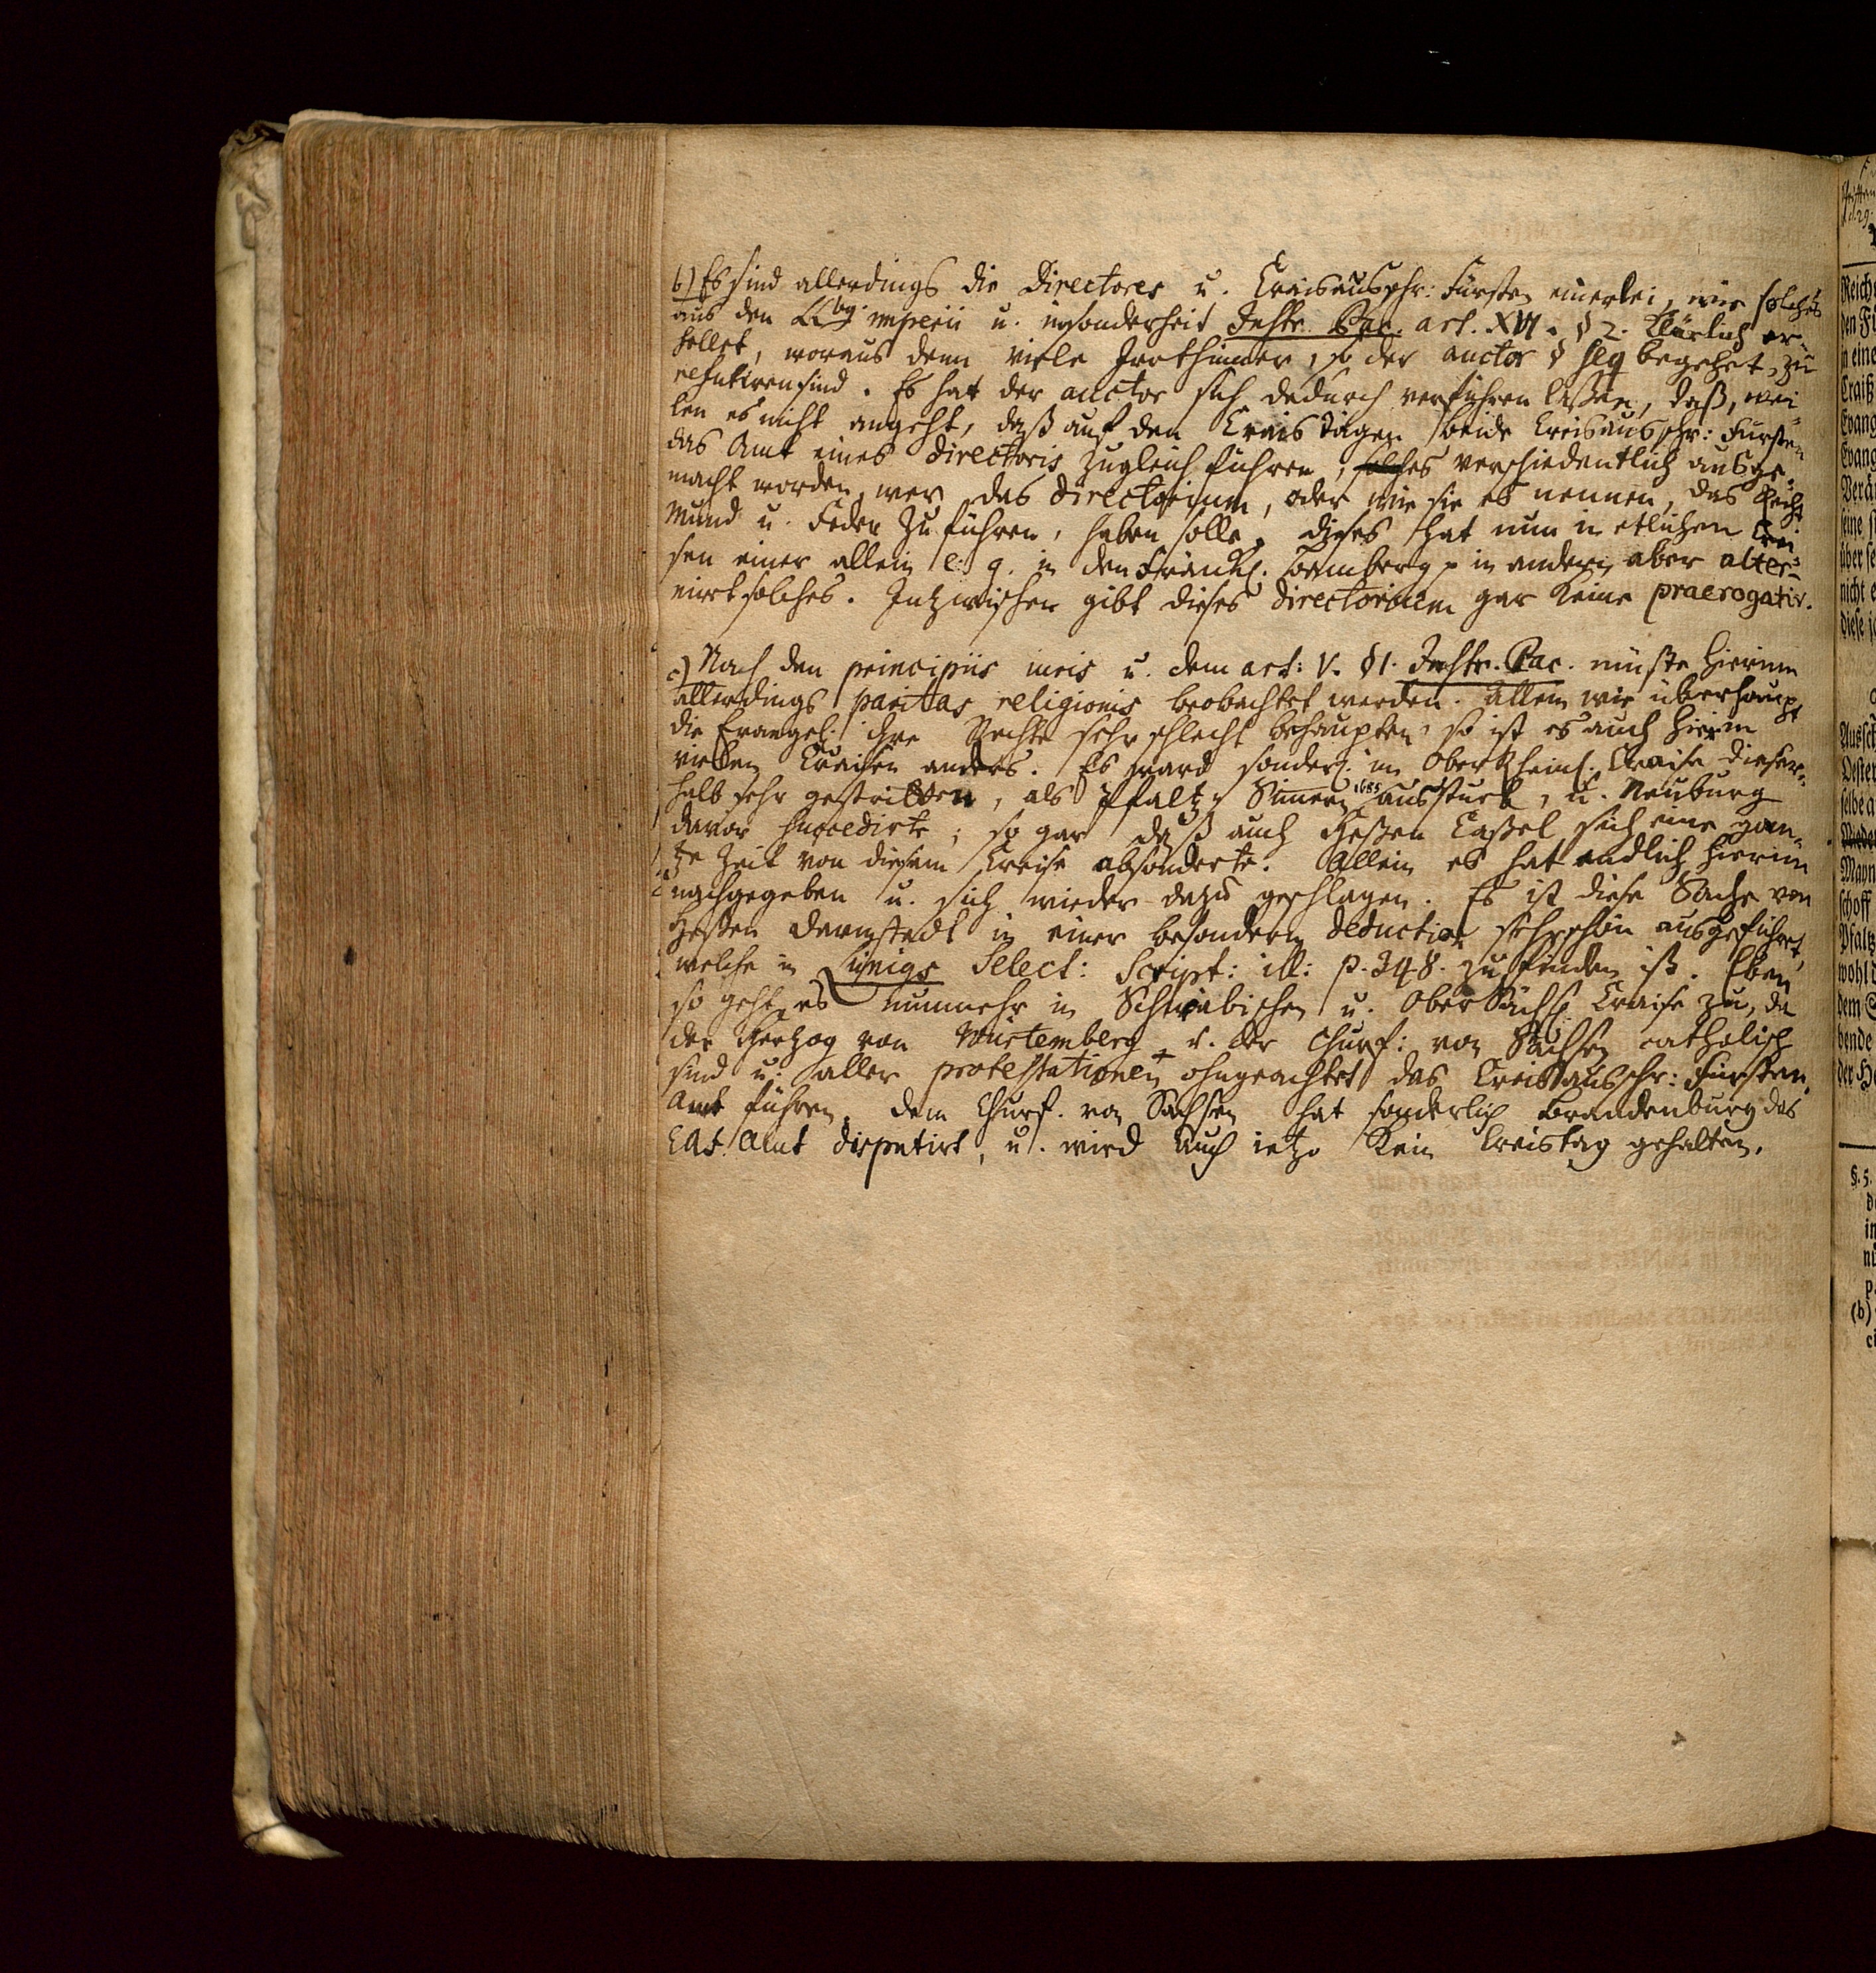 b) Es sind allerdings die Directores u. Craisausschr: Fürsten einerlei, wie solches
aus den LLbg. imperii u. insonderheit Instr. Pac. art. XVI. § 2. klärlich er-
hellet, woraus denn viele Irrthümer, so der auctor § seq begehet, zu
refutiren sind. Es hat der auctor sich dadurch verführen laßen, daß, wei
len es nicht angeht, daß auf den Crais Tägen beide Creisausschr: Fürsten
das Amt eines Directoris zugleich führen, solches verschiedentlich ausge-
macht worden, wer das Directorium, oder wie sie es nennen, das Recht
Mund u. Feder zu führen, haben solle. Dieses hat nun in etlichen Crei-
sen einer allein e. g. in den Fränck. Bamberg p in andern aber alter-
nirt solches. Inzwischen gibt dieses Directorium gar keine praerogativ.
c) Nach den principiis meis u. dem art: V. § 1. Instr. Pac. müste hierinn
allerdings paritas religionis beobachtet werden. Allein wie überhaupt
die Evangel: ihre Rechte sehr schlecht behaupten, so ist es auch hier in
vielen Craisen anders. Es ward sonderl. im OberRheinl. Craise dieser-
halb sehr gestritten, als Pfaltz Simern 1685 ausstarb, u. Neuburg
davor succedirte; so gar daß auch Heßen Caßel sich eine gan-
tze Zeit von diesem Creise absonderte. Allein es hat endlich hierinn
nachgegeben u. sich wieder dazu geschlagen. Es ist diese Sache von
Heßen Darmstadt in einer besondern Deduction sehr schön ausgeführet,
welche in Lünigs Select: Script: ill: p. 348. zu finden ist. Eben
so geht es nunmehr in Schwäbischen u. Ober Sächs. Craise zu, da
der Herzog von Würtemberg u. der Churf: von Sachsen catholisch
sind u. aller protestationen ohngeachtet das Creisausschr: Fürsten
Amt führen. Dem Churf. von Sachsen hat sonderlich Brandenburg das
Amt disputirt, u. wird auch ietzo kein Creistag gehalten.